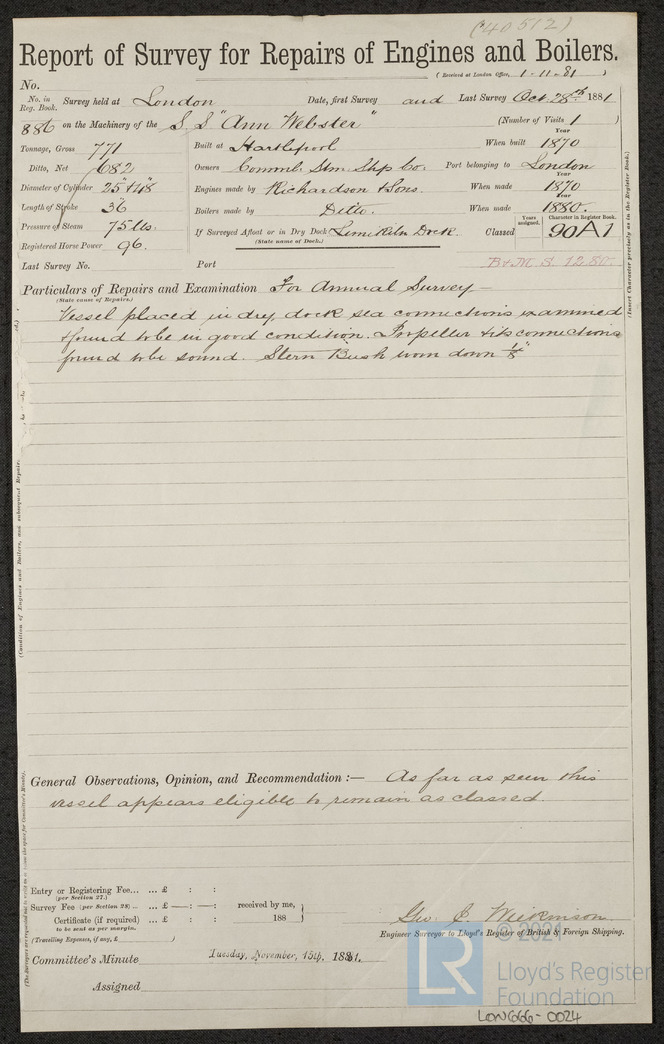 (40512)
Report of Survey for Repairs of Engines and Boilers.
(Received at London Office, 1-11-81)
No.
No. in Reg. Book. Survey held at London Date, first Survey and Last Survey Oct. 28th 1881
886 on the Machinery of the S.S. "Ann Webster" (Number of Visits 1)
Tonnage, Gross 771 Built at Hartlepool When built Year 1870
Ditto, Net 682 Owners Comml. Stm. Shp Co. Port belonging to London
Diameter of Cylinder 25" & 48" Engines made by Richardson & Sons. When made Year 1870
Length of Stroke 36 Boilers made by Ditto. When made Year 1880.
Pressure of Steam 75 lbs. If Surveyed Afloat or in Dry Dock Limekiln Dock. Classed Years assigned. Character in Register Book. 90A1
(State name of Dock.)
Registered Horse Power 96.
Last Survey No. Port B&M.S. 12.80
(Insert Character precisely as in the Register Book.)
Particulars of Repairs and Examination For Annual Survey —
(State cause of Repairs.)
Vessel placed in dry dock sea connections examined
& found to be in good condition. Propeller & its connections
found to be sound. Stern Bush worn down 1/8"
(Condition of Engines and Boilers, and subsequent Repair.
General Observations, Opinion, and Recommendation :— As far as seen this
vessel appears eligible to remain as classed.
Entry or Registering Fee... ... £ : :
(per Section 27.)
Survey Fee (per Section 28) ... ... £ — : — : received by me,
Certificate (if required) ... £ : : 188
to be sent as per margin.
(Travelling Expenses, if any, £ )
Engineer Surveyor to Lloyd's Register of British & Foreign Shipping.
Committee's Minute Tuesday, November, 15th, 1881.
Assigned
LR © 2021
Lloyd's Register
Foundation
LON666-0024